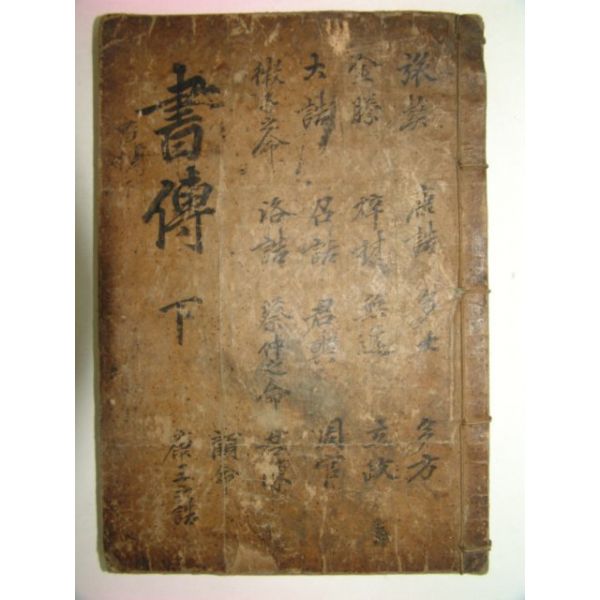 書傳 下
旅獒 康誥 多士 多方
金縢 梓材 無逸 立政
大誥 召誥 君奭 周官
微子之命 洛誥 蔡仲之命 君陳
顧命
康王之誥